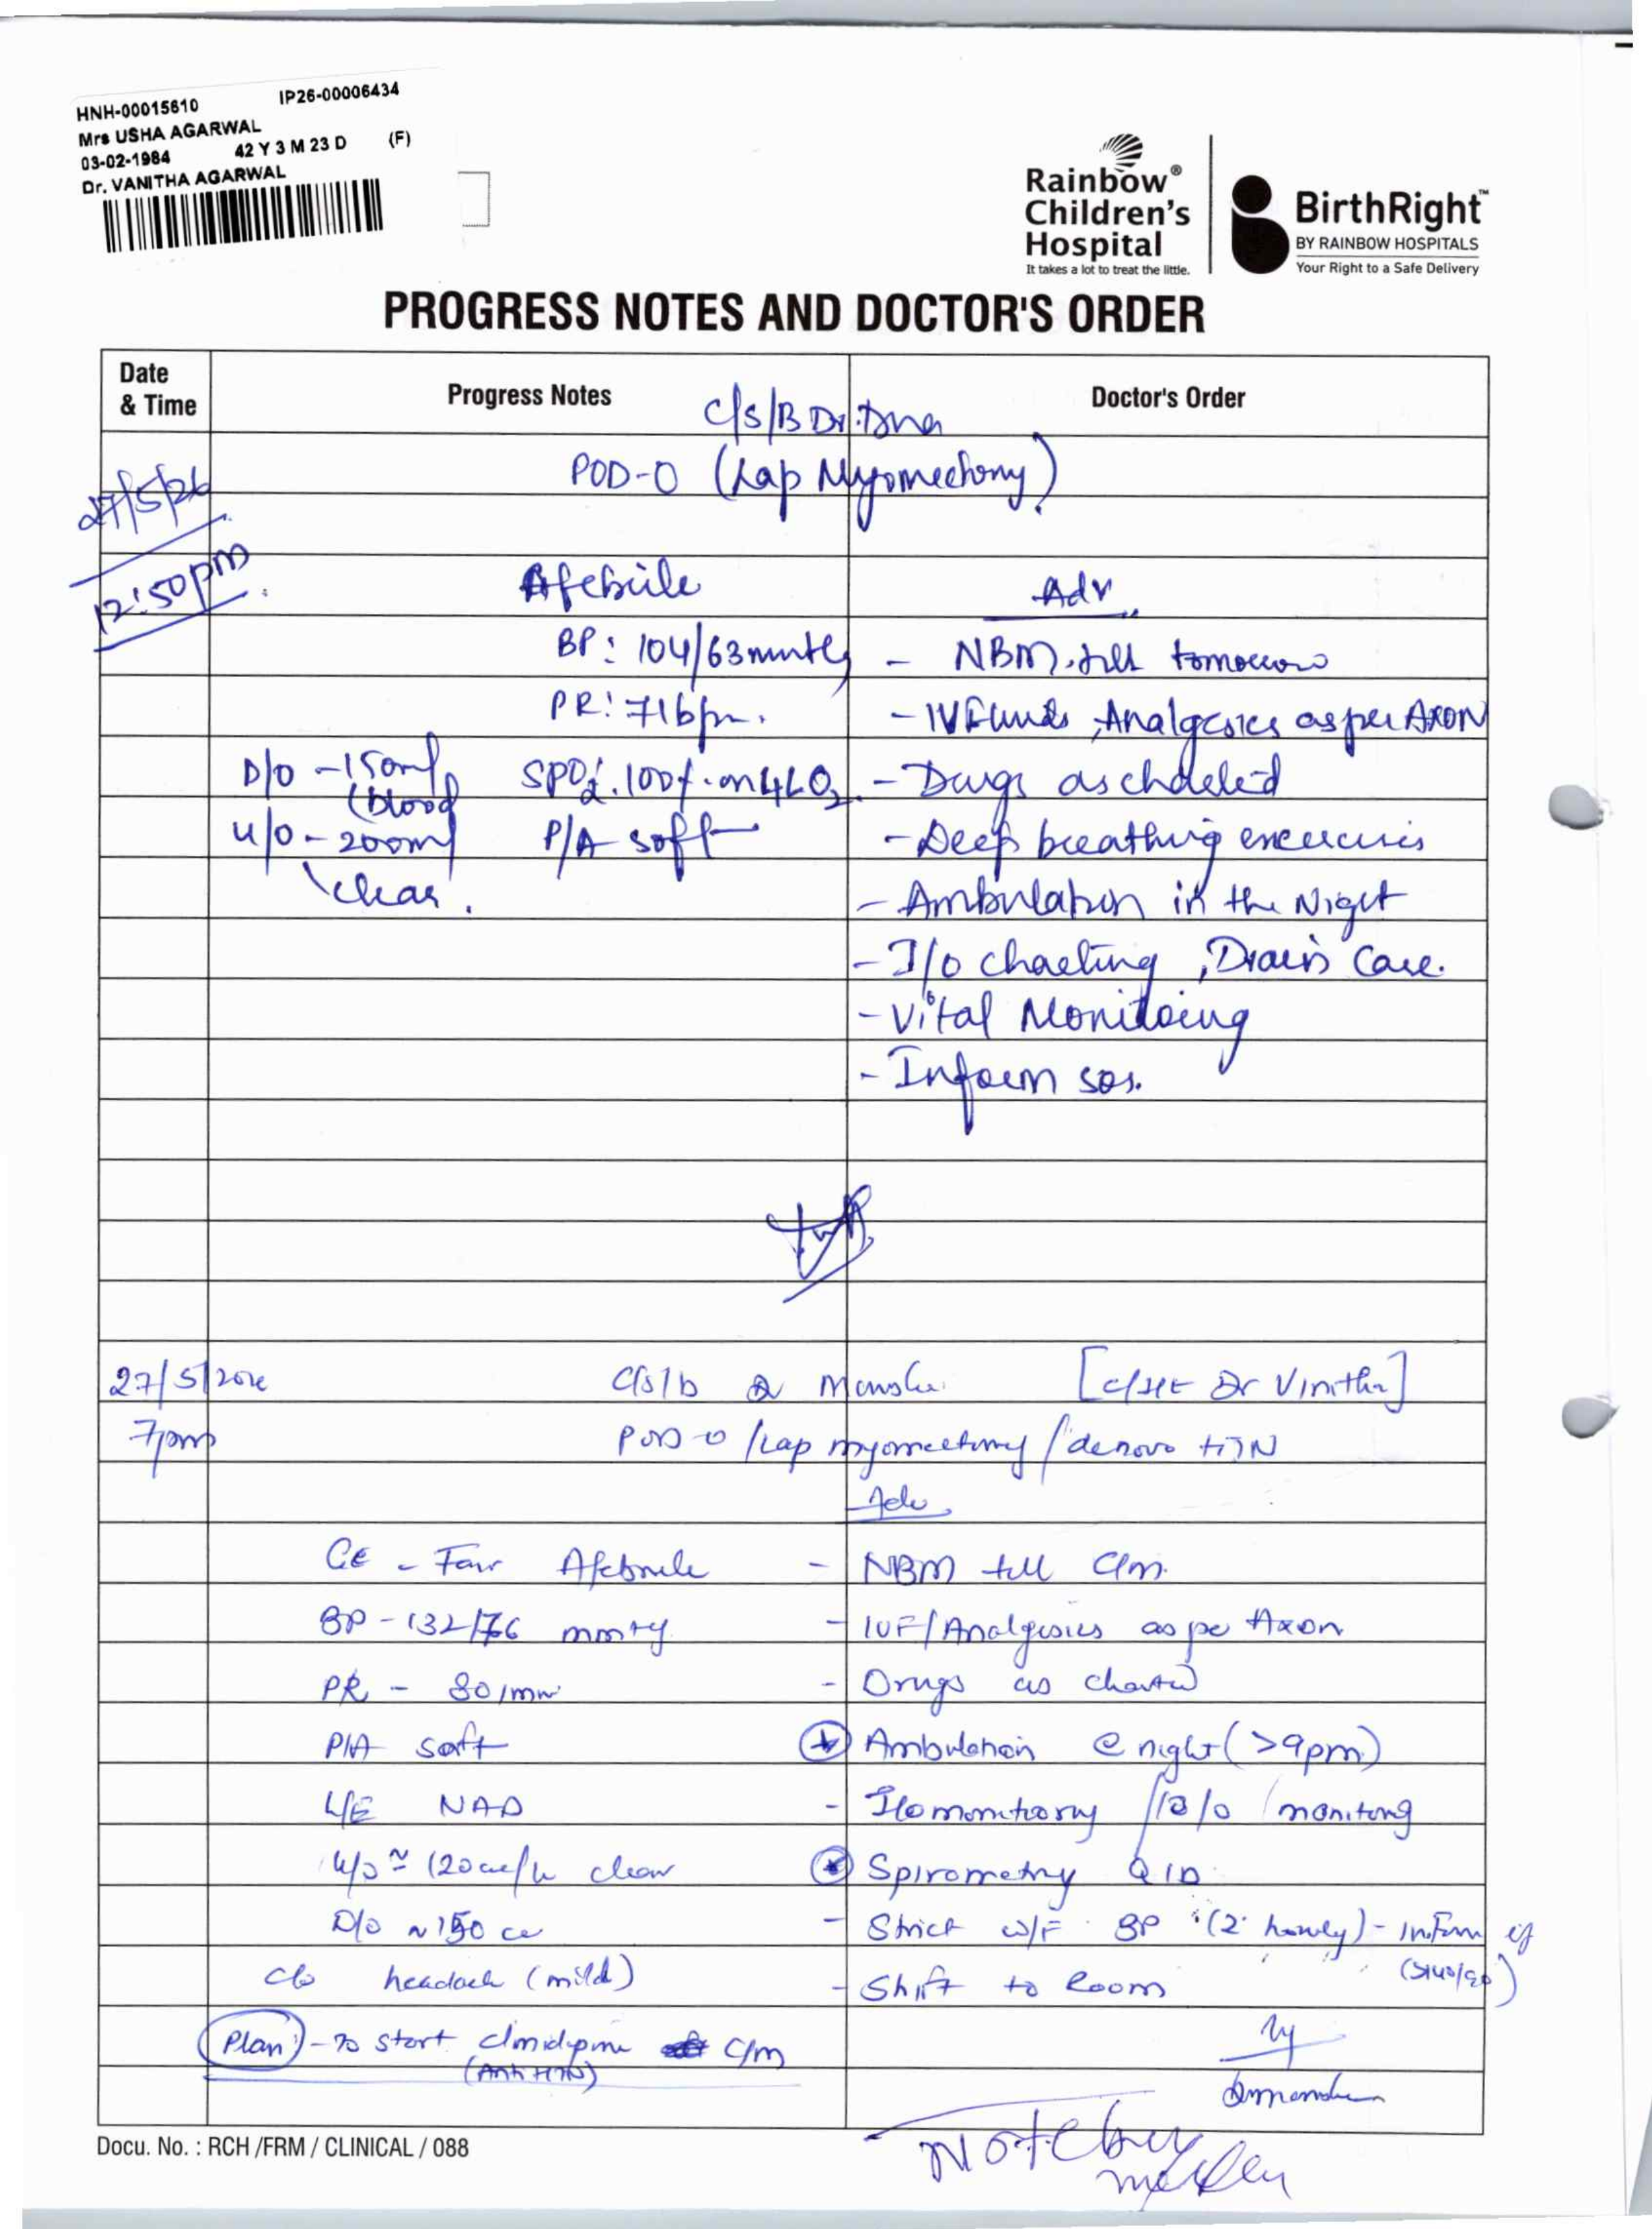 HNH-00015610 IP26-00006434
Mrs USHA AGARWAL
03-02-1984 42 Y 3 M 23 D (F)
Dr. VANITHA AGARWAL
Rainbow®
Children's
Hospital
It takes a lot to treat the little.
BirthRight™
BY RAINBOW HOSPITALS
Your Right to a Safe Delivery
PROGRESS NOTES AND DOCTOR'S ORDER
Date & Time Progress Notes Doctor's Order
C/S/B Dr.
27/5/26 POD-0 (Lap Myomectomy)
12:50pm Afebrile Adv
BP: 104/63mmHg - NBM till tomorrow
PR: 71bpm. - IV Fluids, Analgesics as per AXON
D/O - 150ml (blood SPO2: 100% on 4L O2 - Drugs as
U/O - 200ml P/A soft - Deep breathing exercises
clear. - Ambulation in the Night
- I/O charting, Drain Care.
- Vital Monitoring
- Inform sos.
27/5/ C/s/b Dr [ Dr Vinitha]
7pm POD-0 / Lap myomectomy / denovo HTN
Adv
GE - Fair Afebrile - NBM till C/m.
BP - 132/76 mmHg - IVF/Analgesics as per Axon
PR - 80/min - Drugs as charted
P/A soft Ambulation @ night (>9pm)
L/E NAD - monitoring
U/O ≃ 120cc/h clear Spirometry QID
D/O ~ 150 cc - Strict w/F BP (2 hourly) - Inform if
(>140/90)
c/o headach (mild) - Shift to Room
Plan - To start c/m
(Anti HTN)
Docu. No. : RCH /FRM / CLINICAL / 088